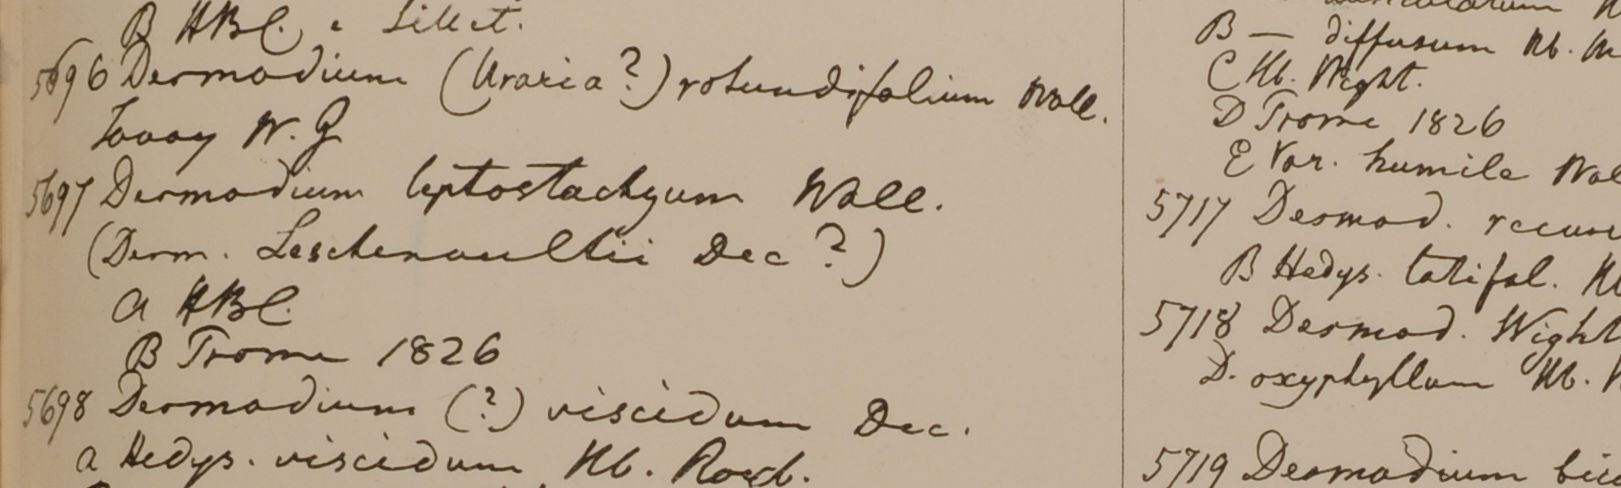 B HBC. e Sillet.
5696 Desmodium (Uraria?) rotundifolium Wall.
Tavoy W. G
5697 Desmodium leptostachyum Wall.
(Desm. Leschenaultii Dec?)
a HBC.
B Prome 1826
5698 Desmodium (?) viscidum Dec.
a Hedys. viscidum Hb. Roxb.
B — diffusum Hb.
C Hb. Wight.
D Prome 1826
E Var. humile Wal
5717 Desmod. recur
B Hedys. latifol.
5718 Desmod. Wight
D. oxyphyllum Hb.
5719 Desmodium